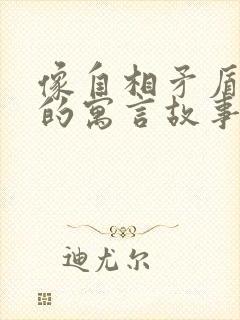 像自相矛盾
的寓言故事
迪尤尔